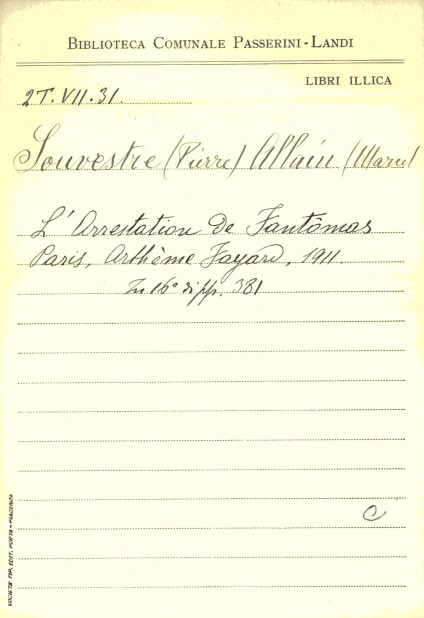 BIBLIOTECA COMUNALE PASSERINI-LANDI
LIBRI ILLICA
2T.VII.31.
Souvestre (Pierre) Allain (Marcel
L'Arrestation de Fantômas
Paris, Arthème Fayard, 1911.
In 16° di pp. 381
C
SOCIETÀ TIP. EDIT. PORTA - PIACENZA